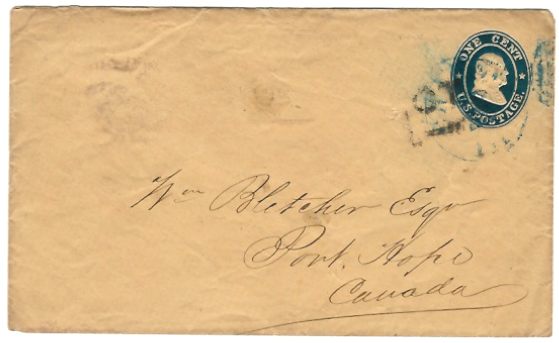 ONE CENT
U.S. POSTAGE.
Wm Bletcher Esqr
Port. Hope
Canada